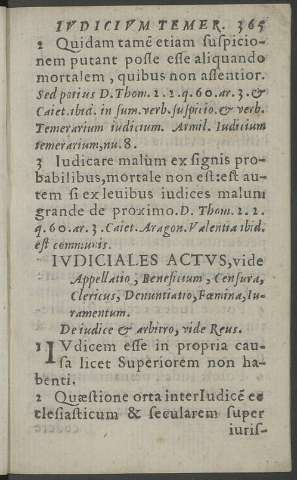 IVDICIVM TEMER. 365
2 Quidam tamē etiam suspicio-
nem putant posse esse aliquando
mortalem, quibus non assentior.
Sed potius D. Thom. 2.2.q.60.ar.3.&
Caiet.ibid. in sum.verb.suspicio.& verb.
Temerarium iudicium. Armil. Iudicium
temerarium,nu.8.
3 Iudicare malum ex signis pro-
babilibus,mortale non est:est au-
tem si ex leuibus iudices malum
grande de proximo. D. Thom. 2.2.
q.60.ar.3.Caiet.Aragon.Valentia ibid.
est communis.
IVDICIALES ACTVS, vide
Appellatio, Beneficium, Censura,
Clericus, Denuntiatio, Fœmina, Iu-
ramentum.
De iudice & arbitro, vide Reus.
1 IVdicem esse in propria cau-
sa licet Superiorem non ha-
benti.
2 Quæstione orta inter Iudicē ec
clesiasticum & secularem super
iuris-